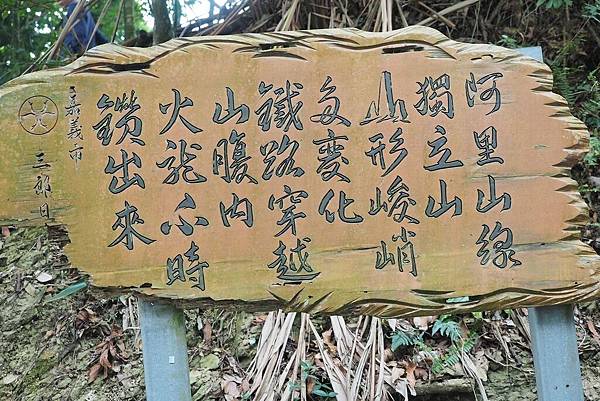 阿里山線
獨立山
山形峻峭
多變化
鐵路穿越
山腹內
火龍不時
鑽出來
嘉義市
三郎日